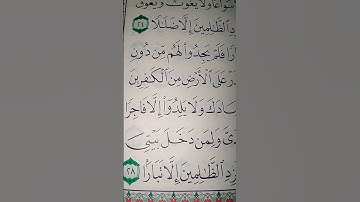 سُوَاعًا وَلَا يَغُوثَ وَيَعُوقَ
دِ ٱلظَّٰلِمِينَ إِلَّا ضَلَٰلًا ٢٤
ارًا فَلَمْ يَجِدُوا۟ لَهُم مِّن دُونِ
ذَرْ عَلَى ٱلْأَرْضِ مِنَ ٱلْكَٰفِرِينَ
بَادَكَ وَلَا يَلِدُوٓا۟ إِلَّا فَاجِرًا
دَىَّ وَلِمَن دَخَلَ بَيْتِىَ
زِدِ ٱلظَّٰلِمِينَ إِلَّا تَبَارًۢا ٢٨